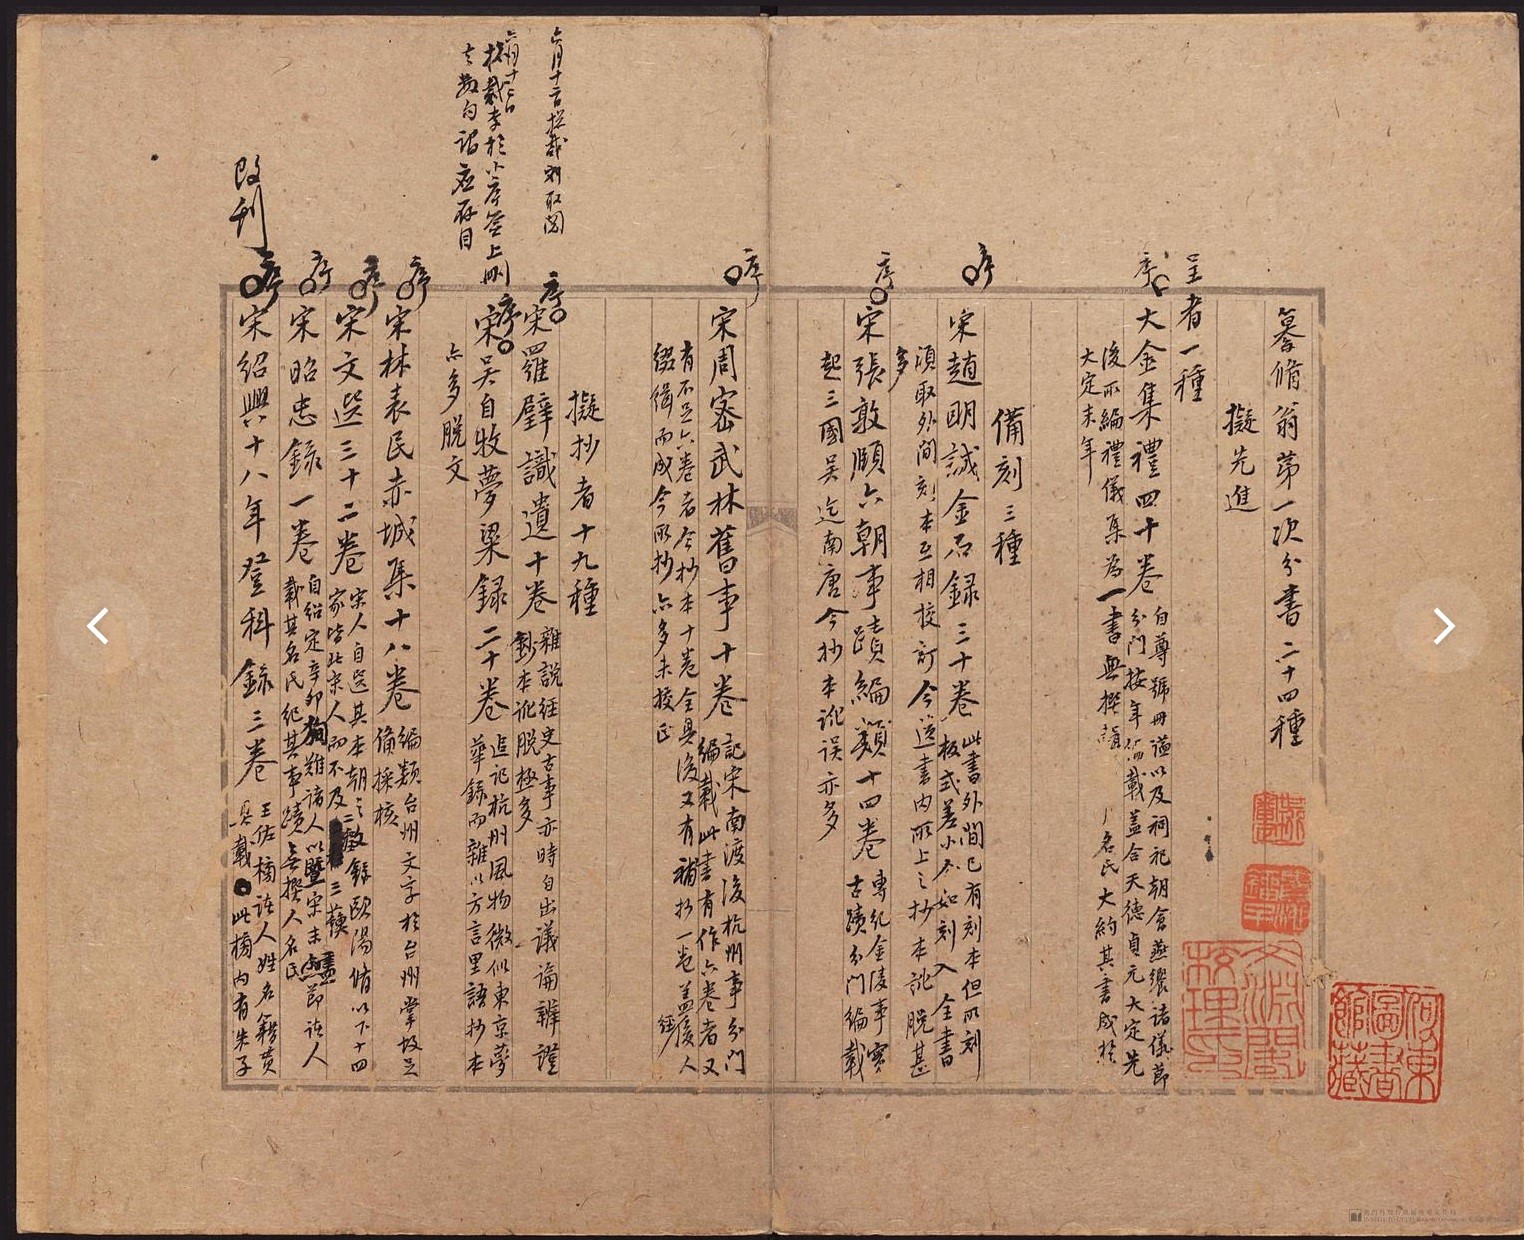 纂脩翁第一次分書二十四種
擬先進
呈者一種
序
大金集禮四十卷
自尊號冊諡以及祠祀朝會燕饗諸儀節
分門按年備載蓋合天德貞元大定先
後所編禮儀集為一書無撰
名氏大約其書成於
大定末年
備刻三種
序
宋趙明誠金石錄三十卷
此書外間已有刻本但所刻
板式差小不如刻入全書
須取外間刻本互相校訂今送書內所上之抄本訛脫甚
多
序
宋張敦頤六朝事蹟編類十四卷
專紀金陵事實
古蹟分門編載
起三國吳迄南唐今抄本訛誤亦多
序
宋周密武林舊事十卷
記宋南渡後杭州事分門
編載此書有作六卷者又
有不足六卷者今抄本十卷全具後又有補抄一卷蓋後人
綴緝而成今所抄亦多未校正
擬抄者十九種
序
宋羅璧識遺十卷
雜說經史古事亦時自出議論辨證
鈔本訛脫極多
序
宋吳自牧夢粱錄二十卷
追記杭州風物微似東京夢
華錄而雜以方言里語抄本
亦多脫文
序
宋林表民赤城集十八卷
編類台州文字於台州掌故足
備採核
序
宋文選三十二卷
宋人自選其本朝之文錄歐陽脩以下十四
家皆北宋人而不及三蘇
序
宋昭忠錄一卷
自紹定辛卯殉難諸人以暨宋末盡節諸人
載其名氏紀其事蹟無撰人名氏
改刊
序
宋紹興十八年登科錄三卷
王佐榜諸人姓名籍貫
具載此榜內有朱子
六月十二日總裁刪取閱
六月十二日
總裁李於小序簽上刪
去數句謂應存目
文淵閣校理印
何東圖書館藏